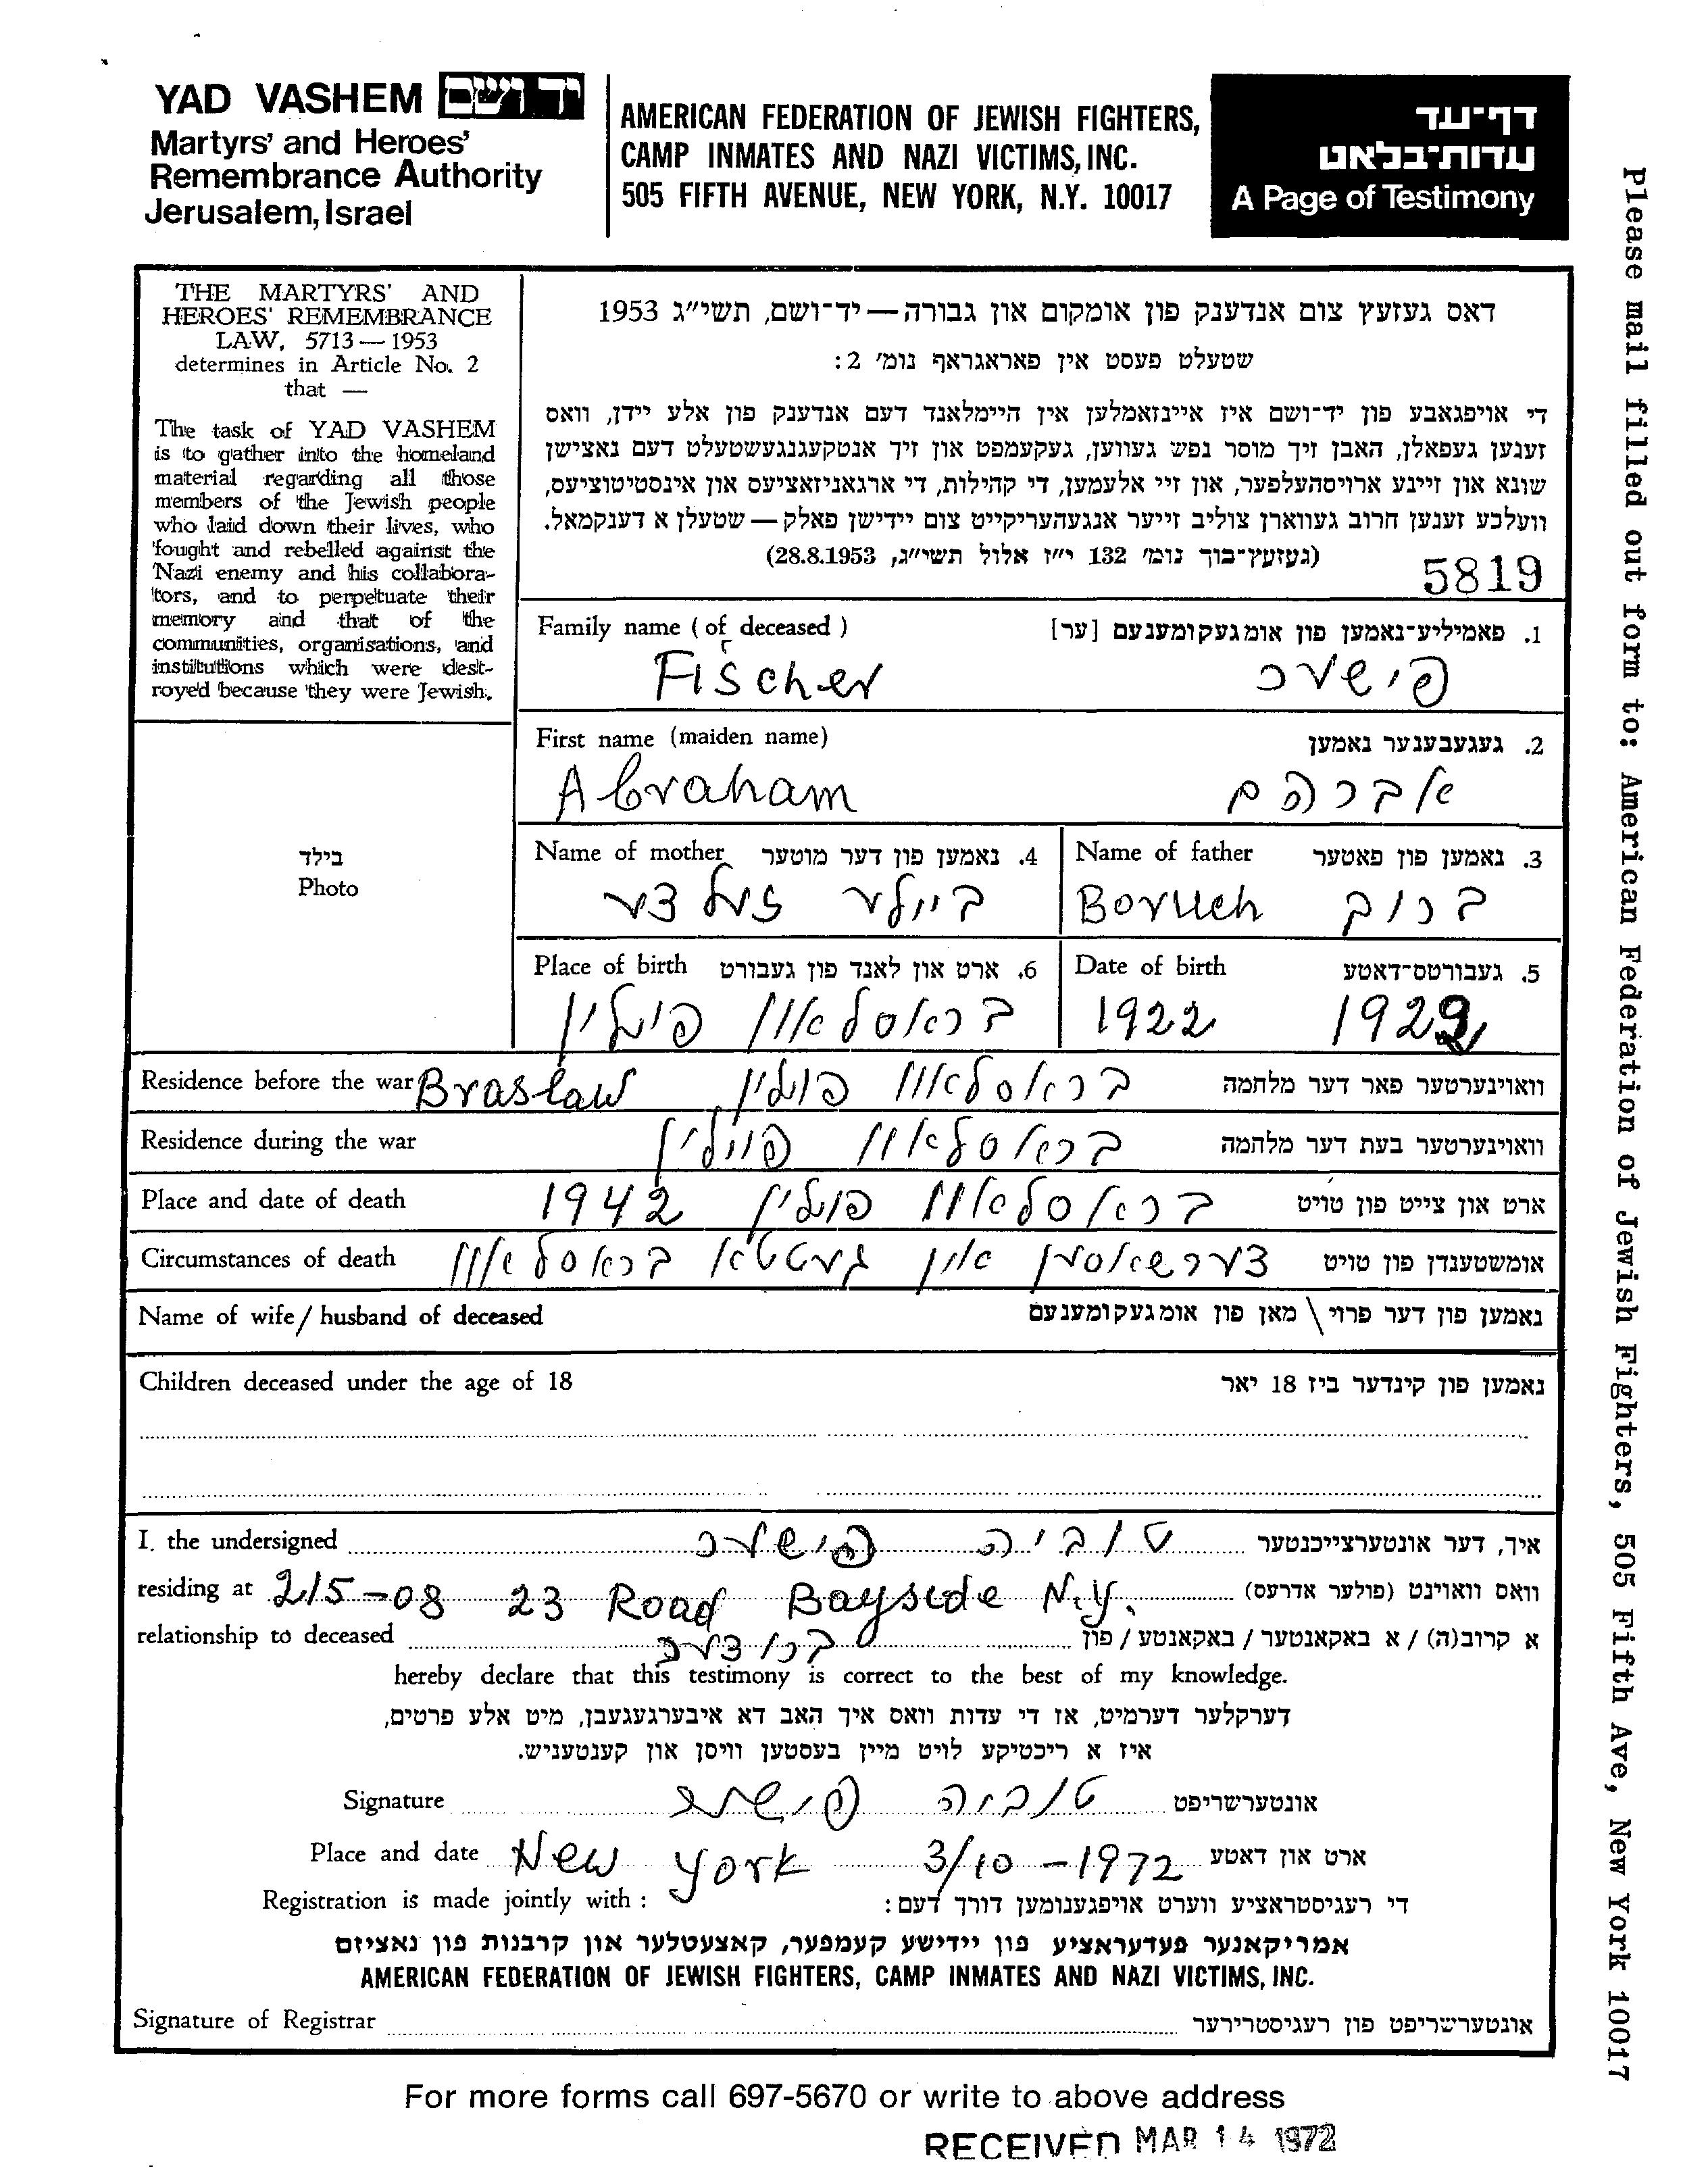 YAD VASHEM יד ושם
Martyrs' and Heroes'
Remembrance Authority
Jerusalem, Israel
AMERICAN FEDERATION OF JEWISH FIGHTERS,
CAMP INMATES AND NAZI VICTIMS, INC.
505 FIFTH AVENUE, NEW YORK, N.Y. 10017
דף־עד
עדות־בלאט
A Page of Testimony
Please mail filled out form to: American Federation of Jewish Fighters, 505 Fifth Ave, New York 10017
THE MARTYRS' AND
HEROES' REMEMBRANCE
LAW, 5713 — 1953
determines in Article No. 2
that —
The task of YAD VASHEM
is to gather into the homeland
material regarding all those
members of the Jewish people
who laid down their lives, who
fought and rebelled against the
Nazi enemy and his collabora-
tors, and to perpetuate their
memory and that of the
communities, organisations, and
institutions which were dest-
royed because they were Jewish.
דאס געזעץ צום אנדענק פון אומקום און גבורה — יד־ושם, תשי״ג 1953
שטעלט פעסט אין פאראגראף נומ׳ 2:
די אויפגאבע פון יד־ושם איז איינזאמלען אין היימלאנד דעם אנדענק פון אלע יידן, וואס
זענען געפאלן, האבן זיך מוסר נפש געווען, געקעמפט און זיך אנטקעגנגעשטעלט דעם נאצישן
שונא און זיינע ארויסהעלפער, און זיי אלעמען, די קהילות, די ארגאניזאציעס און אינסטיטוציעס,
וועלכע זענען חרוב געווארן צוליב זייער אנגעהעריקייט צום יידישן פאלק — שטעלן א דענקמאל.
(געזעץ־בוך נומ׳ 132 י״ז אלול תשי״ג, 28.8.1953)
5819
Family name (of deceased) 1. פאמיליע־נאמען פון אומגעקומענעם [ער]
Fischer פישער
First name (maiden name) 2. געגעבענער נאמען
Abraham אברהם
בילד
Photo
Name of mother 4. נאמען פון דער מוטער
ביילע זעלדע
Name of father 3. נאמען פון פאטער
Boruch ברוך
Place of birth 6. ארט און לאנד פון געבורט
בראסלאוו פוילין
Date of birth 5. געבורטס־דאטע
1922 1922
Residence before the war Braslaw בראסלאוו פולין וואוינערטער פאר דער מלחמה
Residence during the war בראסלאוו פוילין וואוינערטער בעת דער מלחמה
Place and date of death בראסלאוו פולין 1942 ארט און צייט פון טויט
Circumstances of death דערשאסען אין געטא בראסלאוו אומשטענדן פון טויט
Name of wife / husband of deceased נאמען פון דער פרוי \ מאן פון אומגעקומענעם
Children deceased under the age of 18 נאמען פון קינדער ביז 18 יאר
I, the undersigned טוביה פישער איך, דער אונטערצייכנטער
residing at 215-08 23 Road Bayside N.Y. וואס וואוינט (פולער אדרעס)
relationship to deceased ברודער א קרוב(ה) / א באקאנטער / באקאנטע / פון
hereby declare that this testimony is correct to the best of my knowledge.
דערקלער דערמיט, אז די עדות וואס איך האב דא איבערגעגעבן, מיט אלע פרטים,
איז א ריכטיקע לויט מיין בעסטען וויסן און קענטעניש.
Signature טוביה פישער אונטערשריפט
Place and date New York 3/10-1972 ארט און דאטע
Registration is made jointly with: די רעגיסטראציע ווערט אויפגענומען דורך דעם:
אמריקאנער פעדעראציע פון יידישע קעמפער, קאצעטלער און קרבנות פון נאציזם
AMERICAN FEDERATION OF JEWISH FIGHTERS, CAMP INMATES AND NAZI VICTIMS, INC.
Signature of Registrar אונטערשריפט פון רעגיסטרירער
For more forms call 697-5670 or write to above address
RECEIVED MAR 14 1972